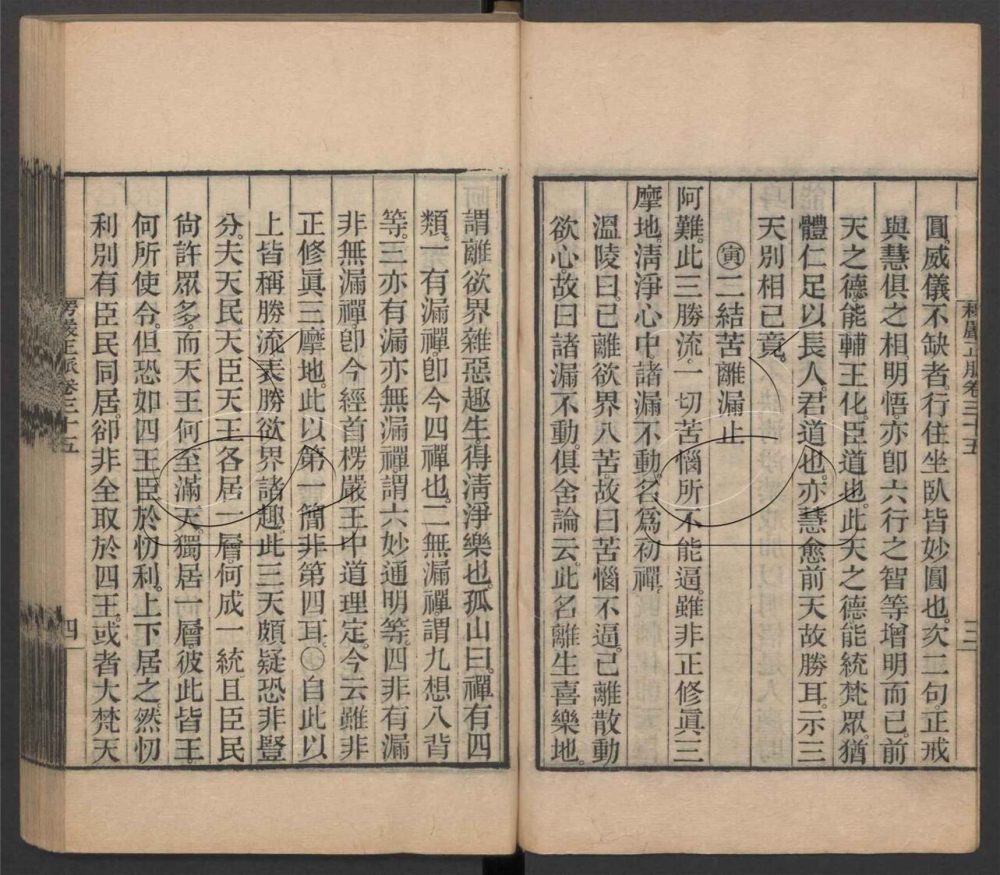 圓。威儀不缺者。行住坐臥皆妙圓也。次二句正戒
與慧俱之相。明悟。亦卽六行之智等增明而已。前
天之德能輔王化。臣道也。此天之德能統梵眾。猶
體仁足以長人。君道也。亦慧愈前天故勝耳。示三
天別相已竟。
㊞二結苦離漏止
阿難。此三勝流。一切苦惱所不能逼。雖非正修眞三
摩地。清淨心中。諸漏不動。名爲初禪。
溫陵曰。已離欲界八苦。故曰苦惱不逼。已離散動
欲心。故曰諸漏不動。俱舍論云。此名離生喜樂地。
謂離欲界雜惡趣生。得淸淨樂也。孤山曰。禪有四
類。一有漏禪。卽今四禪也。二無漏禪。謂九想八背
等。三亦有漏亦無漏禪。謂六妙通明等。四非有漏
非無漏禪。卽今經首楞嚴王中道理定。今云雖非
正修眞三摩地。此以第一簡非第四耳。○自此以
上皆稱勝流。表勝欲界諸趣。此三天頗疑恐非豎
分。夫天民天臣天王各居一層。何成一統。且臣民
尙許眾多。而天王何至滿天。獨居一層。彼此皆王。
何所使令。但恐如四王臣於忉利。上下居之。然忉
利別有臣民同居。卻非全取於四王。或者大梵天
楞嚴正脈卷三十五
三
楞嚴正脈卷三十五
四